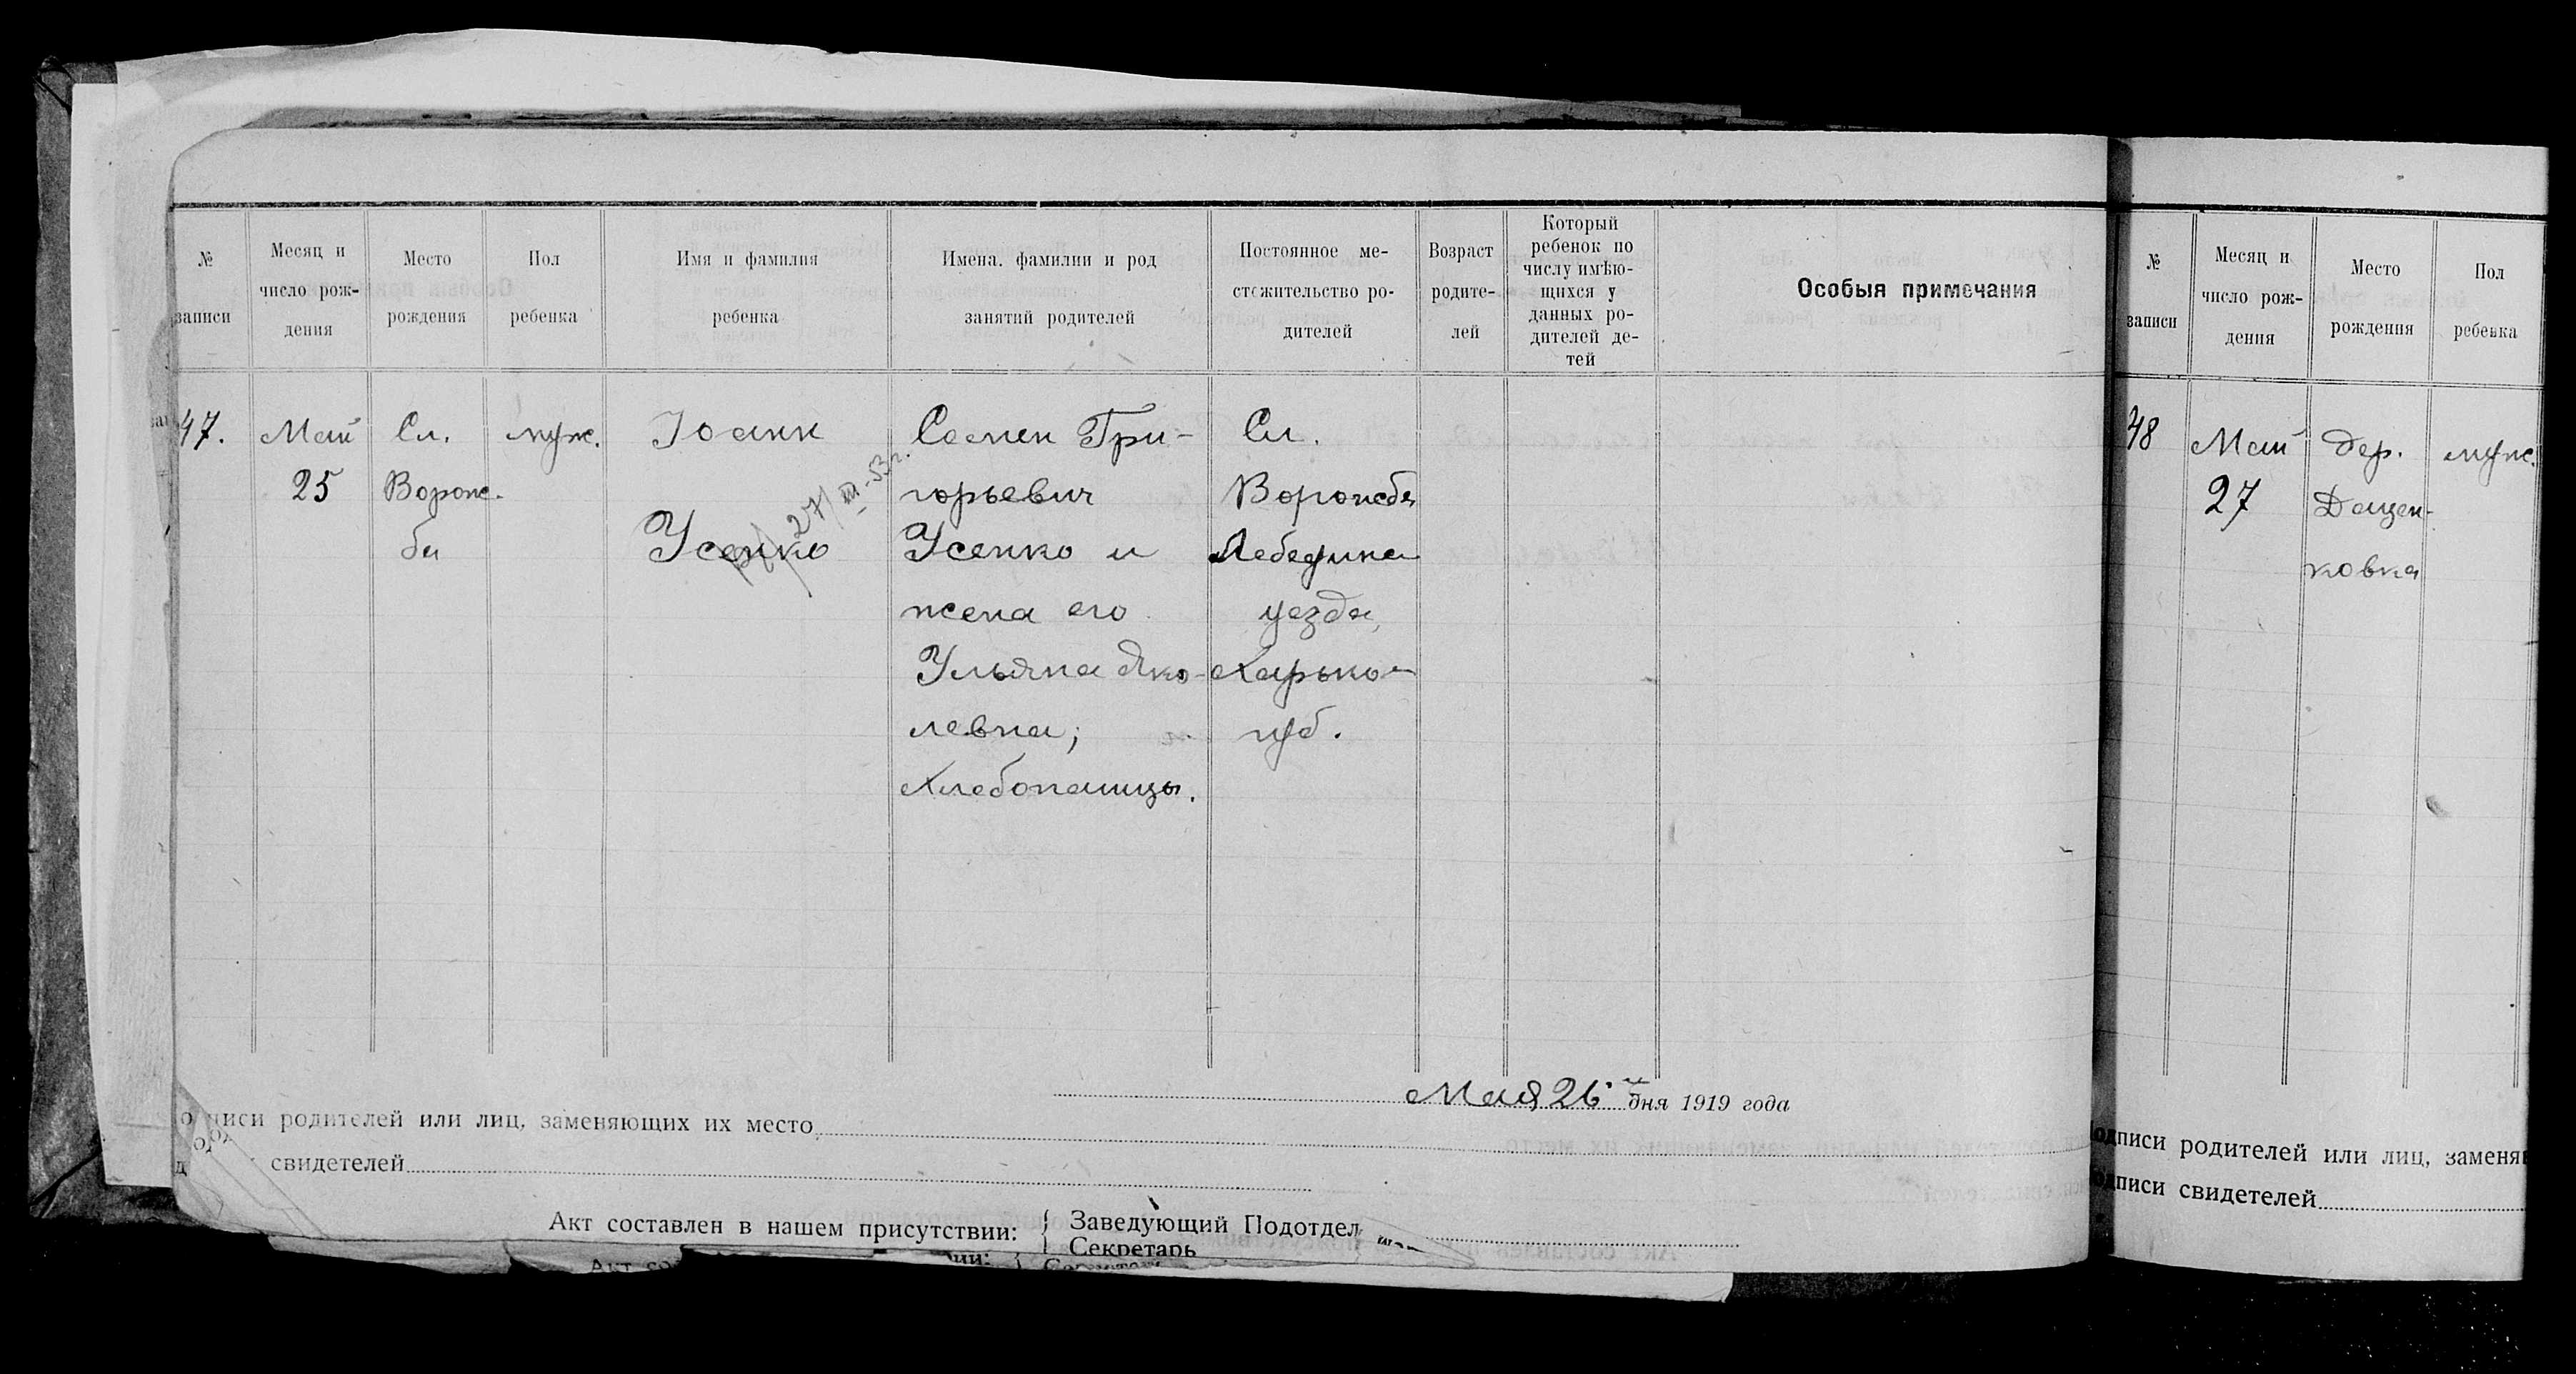 № записи
Месяц и число рож-
дения
Место рождения
Пол ребенка
Имя и фамилия ребенка
Имена. фамилии и род занятий родителей
Постоянное ме-
стожительство ро-
дителей
Возраст родите-
лей
Который
ребенок по
числу имѣю-
щихся у
данных ро-
дителей де-
тей
Особыя примечания
47.
Май
25
Сл.
Ворож-
ба
муж.
Іоанн
Усенко
27/III-53г.
Семен Гри-
горьевич
Усенко и
жена его
Ульяна Яко-
левна;
Хлебопашцы.
Сл.
Ворожба
Лебедина
уезда,
Харько-
губ.
Мая 26 дня 1919 года
писи родителей или лиц, заменяющих их место
свидетелей
Акт составлен в нашем присутствии:
Заведующий Подотдел
Секретарь
№ записи
Месяц и число рож-
дения
Место рождения
Пол ребенка
48
Май
27
дер.
Дощен-
ковка
муж.
одписи родителей или лиц, заменя
одписи свидетелей